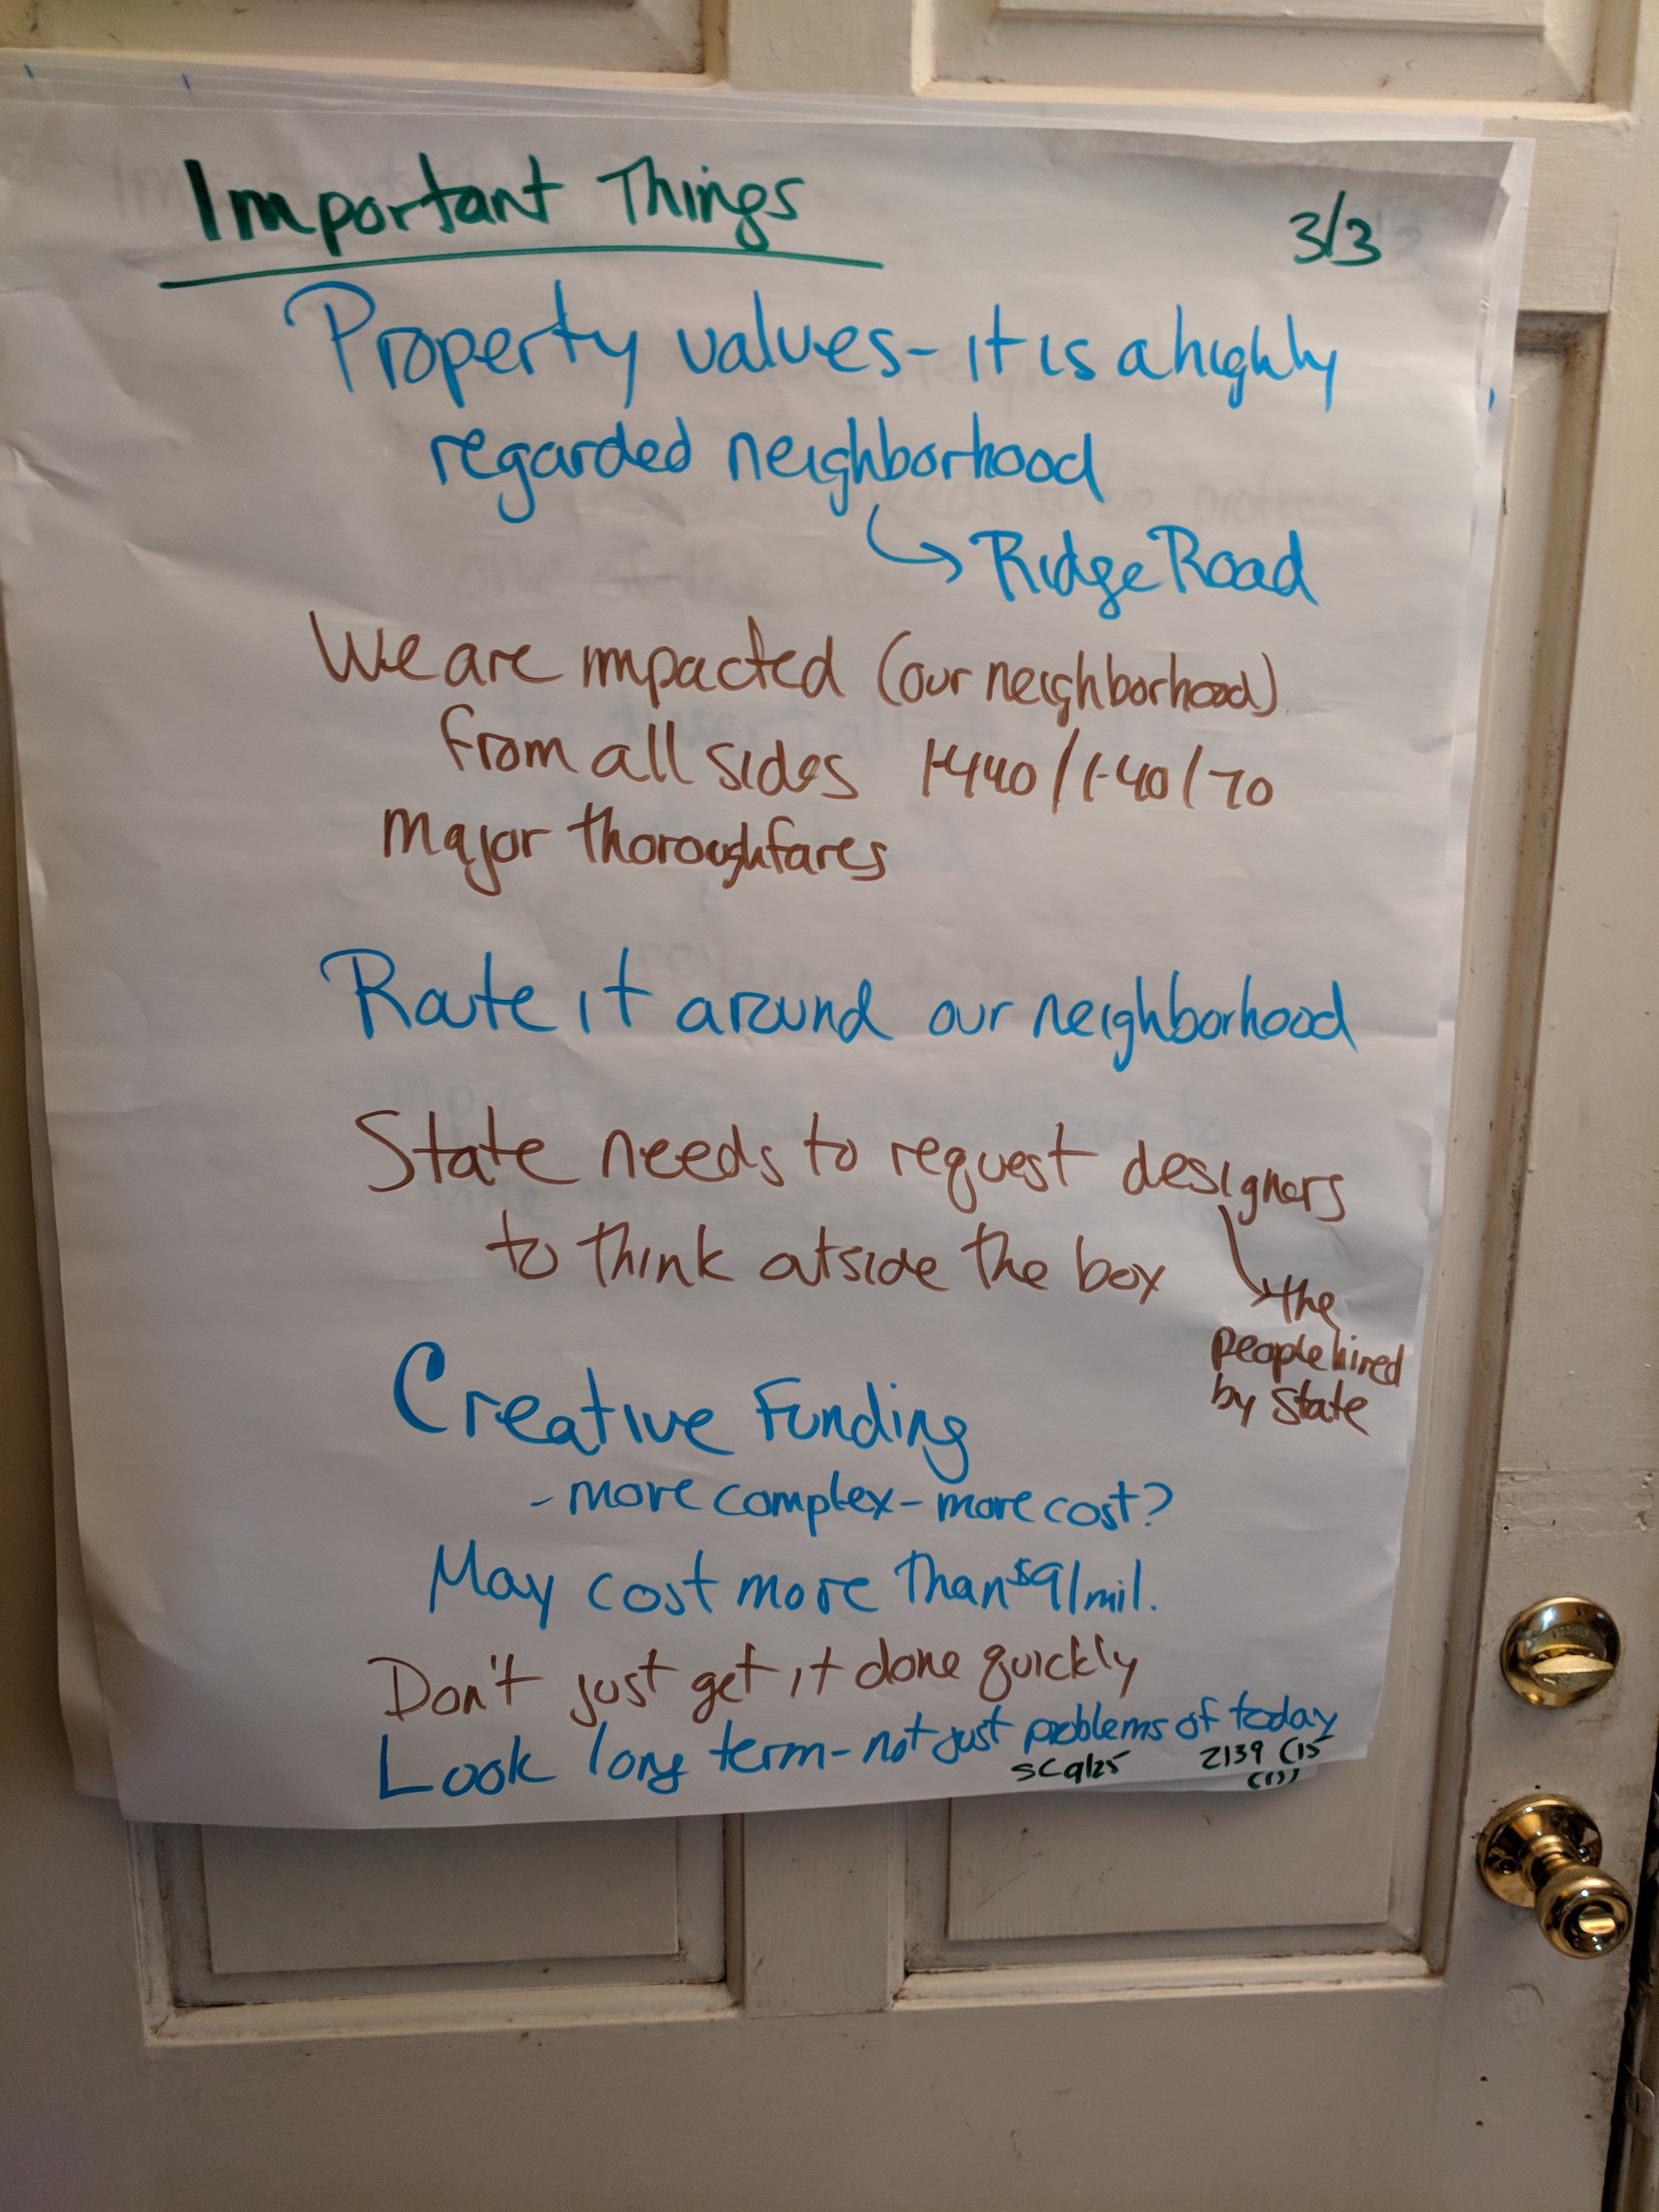 Important Things
3/3
Property values - it is a highly
regarded neighborhood
Ridge Road
We are impacted (our neighborhood)
from all sides I-440/I-40/70
major thoroughfares
Route it around our neighborhood
State needs to request designers
to think outside the box
the
people hired
by state
Creative Funding
- more complex - more cost?
May cost more than $91mil.
Don't just get it done quickly
Look long term - not just problems of today
SC 9/25